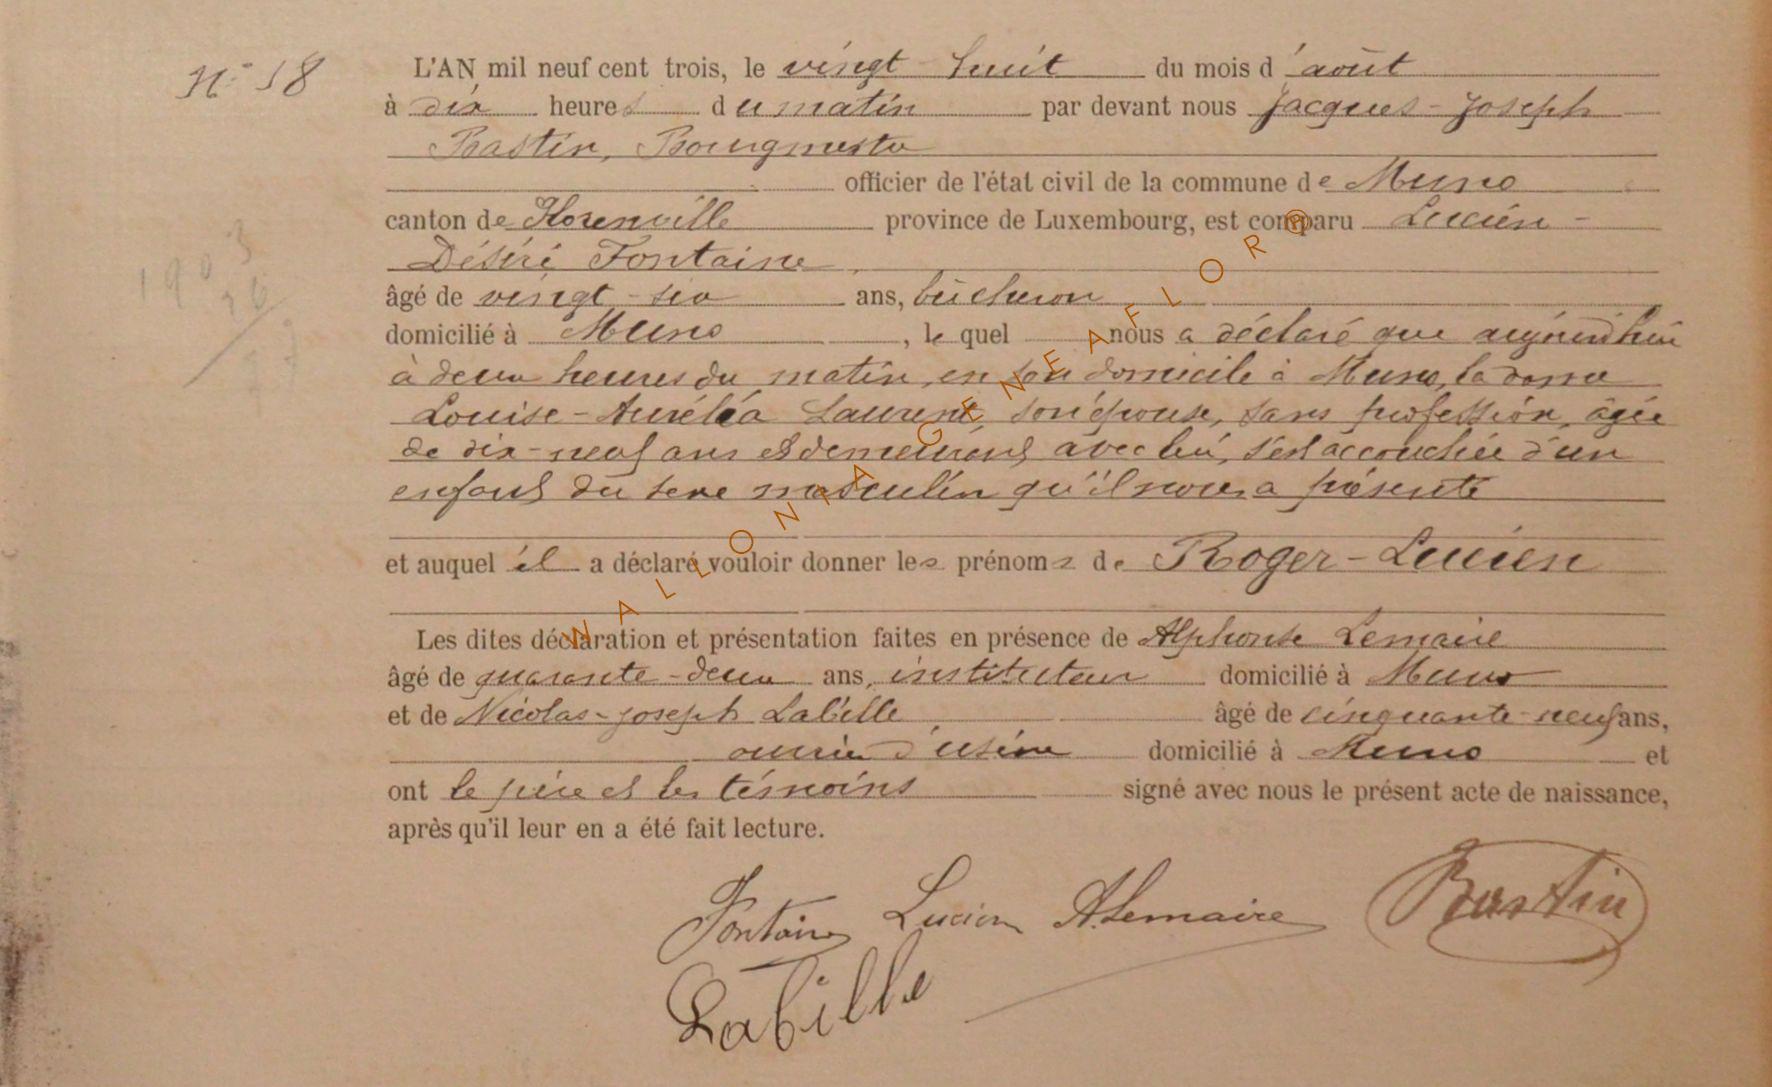 N° 18
L'AN mil neuf cent trois, le vingt huit du mois d'août
à dix heures du matin par devant nous Jacques-Joseph
Bastin, Bourgmestre
officier de l'état civil de la commune de Muno
canton de Florenville province de Luxembourg, est comparu Lucien-
Désiré Fontaine
âgé de vingt-six ans, bûcheron
domicilié à Muno, lequel nous a déclaré que aujourd'hui
à deux heures du matin, en son domicile à Muno, la dame
Louise-Auréléa Laurent, son épouse, sans profession, âgée
de dix-neuf ans et demeurant avec lui, s'est accouchée d'un
enfant du sexe masculin qu'il nous a présenté
et auquel il a déclaré vouloir donner les prénoms de Roger-Lucien
Les dites déclaration et présentation faites en présence de Alphonse Lemaire
âgé de quarante-deux ans, instituteur domicilié à Muno
et de Nicolas-Joseph Labille, âgé de cinquante-neuf ans,
ouvrier d'usine domicilié à Muno et
ont le père et les témoins signé avec nous le présent acte de naissance,
après qu'il leur en a été fait lecture.
Fontaine Lucien A. Lemaire Bastin
Labille
1903
WALLONIA GENEAFLOR®